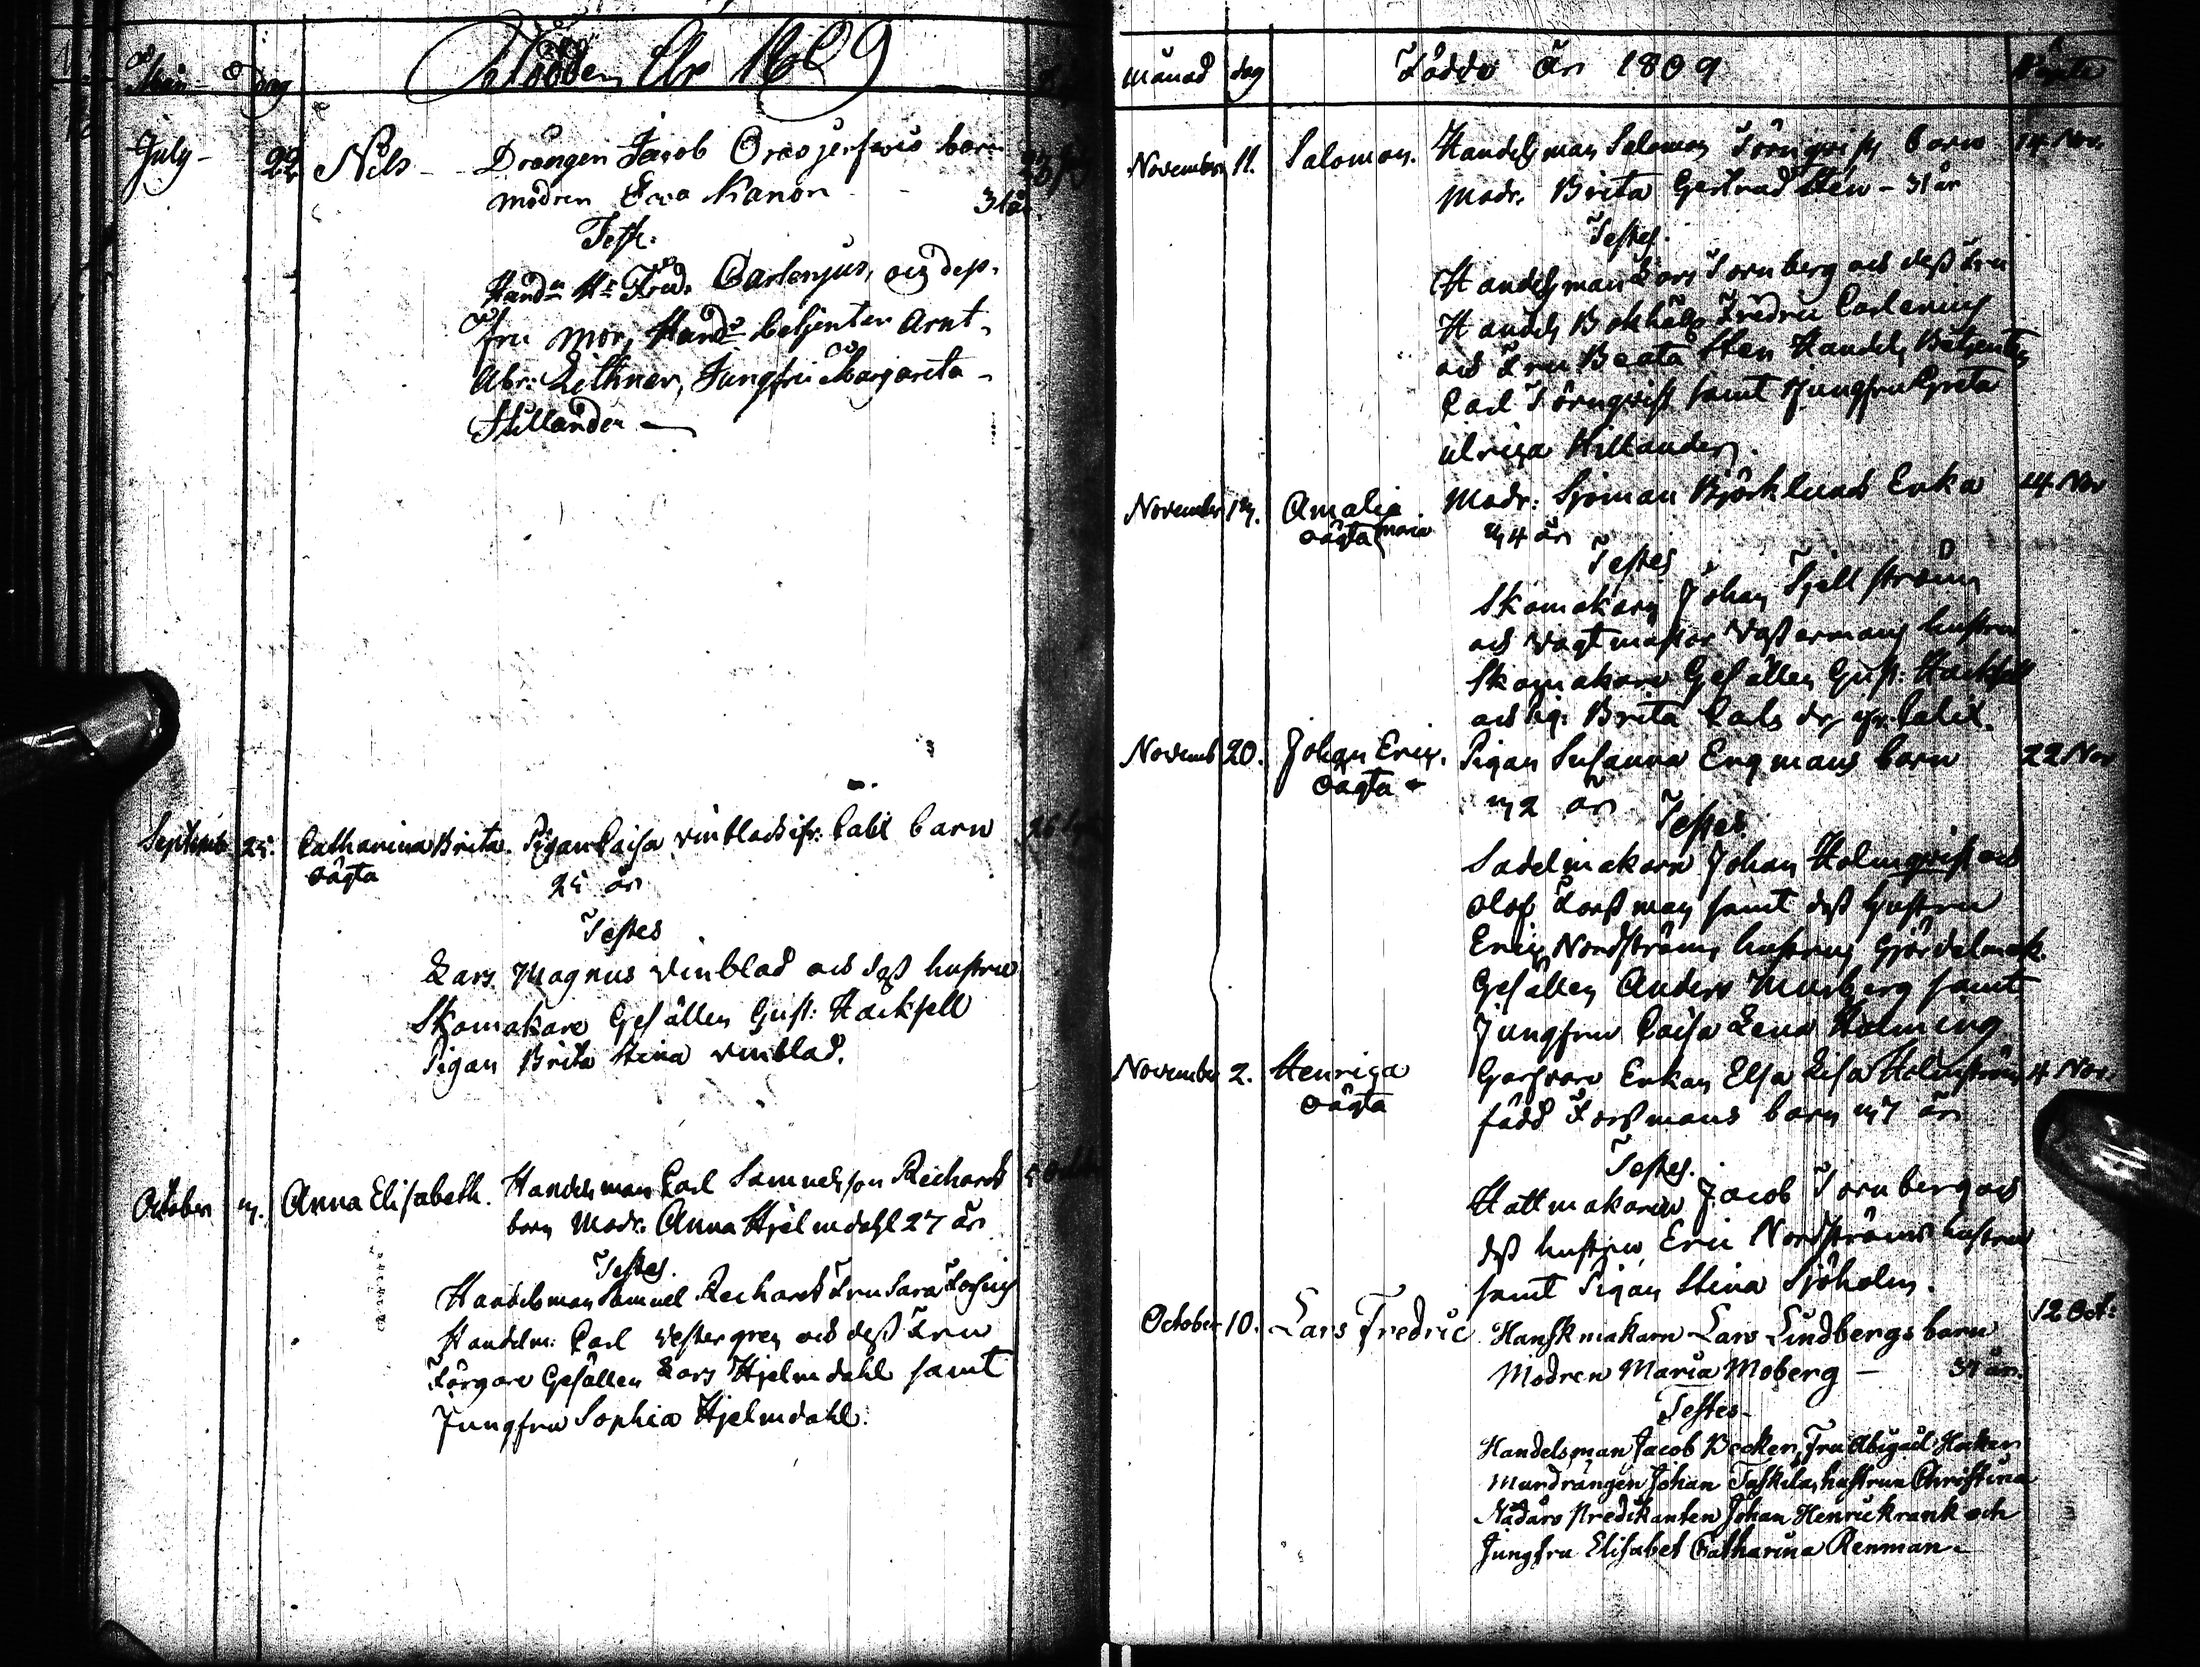 Mån- Dag Födde År 1809
July- 22 Nils - Drängen Jacob barn
modren Ewa Kanon - 31 år.
Test:
Hand:n Hr Fred. Carlenius, och dess
fru mor, Hand:s betjenten Arnt
Abr: Lithner, Jungfru Margareta
Hillander
Septemb. 25. Catharina Brita. Pigan Caisa Vinblad ifr: Calix barn 26
oägta 25 år
Testes
Lars Magnus Vinblad och dess hustru
Skomakare Gesällen Gust: Hackzell
Pigan Brita Stina Vinblad.
October Anna Elisabeth. Handelsman Carl Samuelsson Rechardt
barn Modr: Anna Hjelmdahl 27 år
Testes.
Handelsman Samuel Rechardt Fru Sara
Handelsm: Carl Westergren och dess Fru
Färgare Gesällen Lars Hjelmdahl samt
Jungfru Sophia Hjelmdahl.
Månad dag Födde År 1809 Döpte
November 11. Salomon. Handelsman Salomon Törnqvist barn 14 Nov.
Modr. Brita Gertrud Stén - 31 år
Testes.
Handelsman Lars Tornberg och dess Fru
Handels Bokhåll: Fredric Carlenius
och Fru Beata Sten Handels Betjenten
Carl Törnqvist samt Jungfru Greta
Ulrica Hillander.
November Amalia Modr: Sjöman Björklunds Enka 14 Nov
oägta maria år
Testes
Skomakaren Johan
och Vagtmästar Westermans hustru
Skomakare Gesällen Gust: Hackzell
och Pig: Brita Carls dr ifr. Calix.
Novemb 20. Johan Eric. Pigan Susanna Engmans barn 22 Nov
oägta år
Testes
Sadelmakare Johan Holmqvist och
Olof Forssman samt dess hustru
Eric Nordströms hustru, Gjördelmak.
Gesällen Anders samt
Jungfru Caisa Lena Holming
November 2. Henrica Garfvare Enkan Elsa Lisa Holmström 4 Nov.
oägta född Forssmans barn år
Testes.
Hattmakaren Jacob Tornberg och
dess hustru, Eric Nordströms hustru
samt Pigan Stina Sjöholm.
October 10. Lars Fredric Hanskmakarn Lars Lindbergs barn 12 Oct:
Modren Maria Moberg - 34 år.
Testes-
Handelsman Jacob Becker, Fru Abigail
Murdrängen Johan hustrun Christina
Nådårs Predikanten Johan Henric krank och
Jungfru Elisabet Catharina Renman.